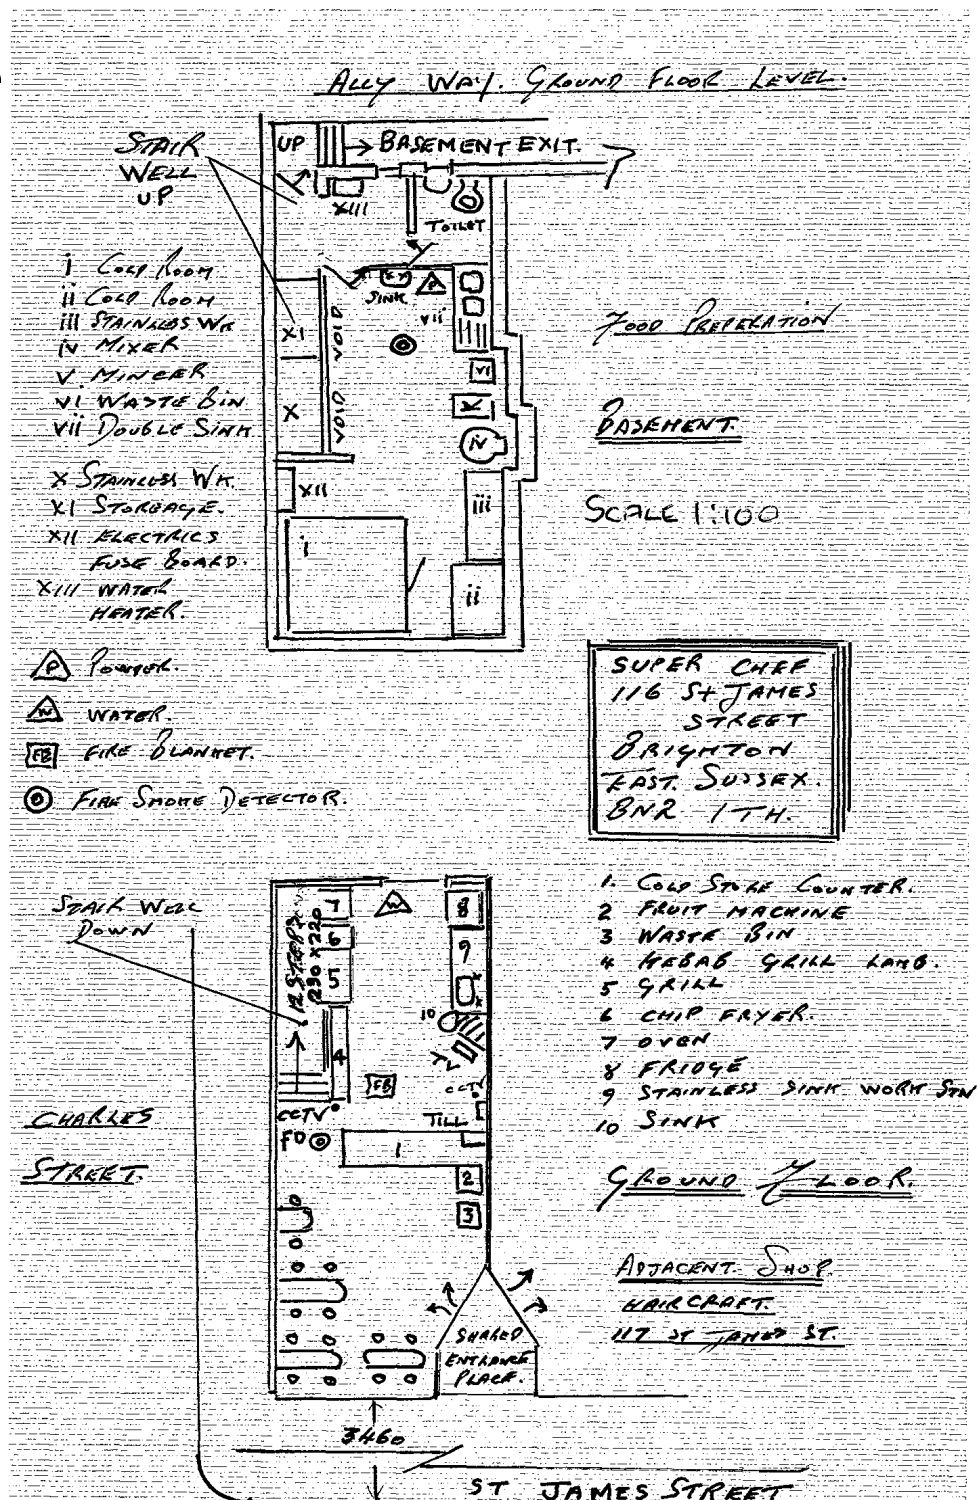 ALLY WAY. GROUND FLOOR LEVEL.
STAIR
WELL
UP
UP
→ BASEMENT EXIT.
XIII
TOILET
SINK
P
vii
XI
VOID
VOID
X
VI
IV
XII
iii
i
ii
i COLD ROOM
ii COLD ROOM
iii STAINLESS WK
iv MIXER
V. MINCER
vi WASTE BIN
vii DOUBLE SINK
X STAINLESS WK.
XI STOREAGE.
XII ELECTRICS
FUSE BOARD.
XIII WATER
HEATER.
P POWDER.
W WATER.
FB FIRE BLANKET.
FIRE SMOKE DETECTOR.
FOOD PREPERATION
BASEMENT.
SCALE 1:100
SUPER CHEF
116 St JAMES
STREET
BRIGHTON
EAST. SUSSEX.
BN2 1TH.
STAIR WELL
DOWN
12 STEPS
230 x 220
7
6
5
4
W
8
9
10
FB
CCTV
CCTV
TILL
FD
1
2
3
SHARED
ENTRANCE
PLACE.
1. COLD STORE COUNTER.
2 FRUIT MACHINE
3 WASTE BIN
4 KEBAB GRILL LAMB.
5 GRILL
6 CHIP FRYER.
7 OVEN
8 FRIDGE
9 STAINLESS SINK WORK STN
10 SINK
CHARLES
STREET.
GROUND FLOOR.
ADJACENT. SHOP.
HAIRCRAFT.
117 ST JAMES ST.
3460
ST JAMES STREET